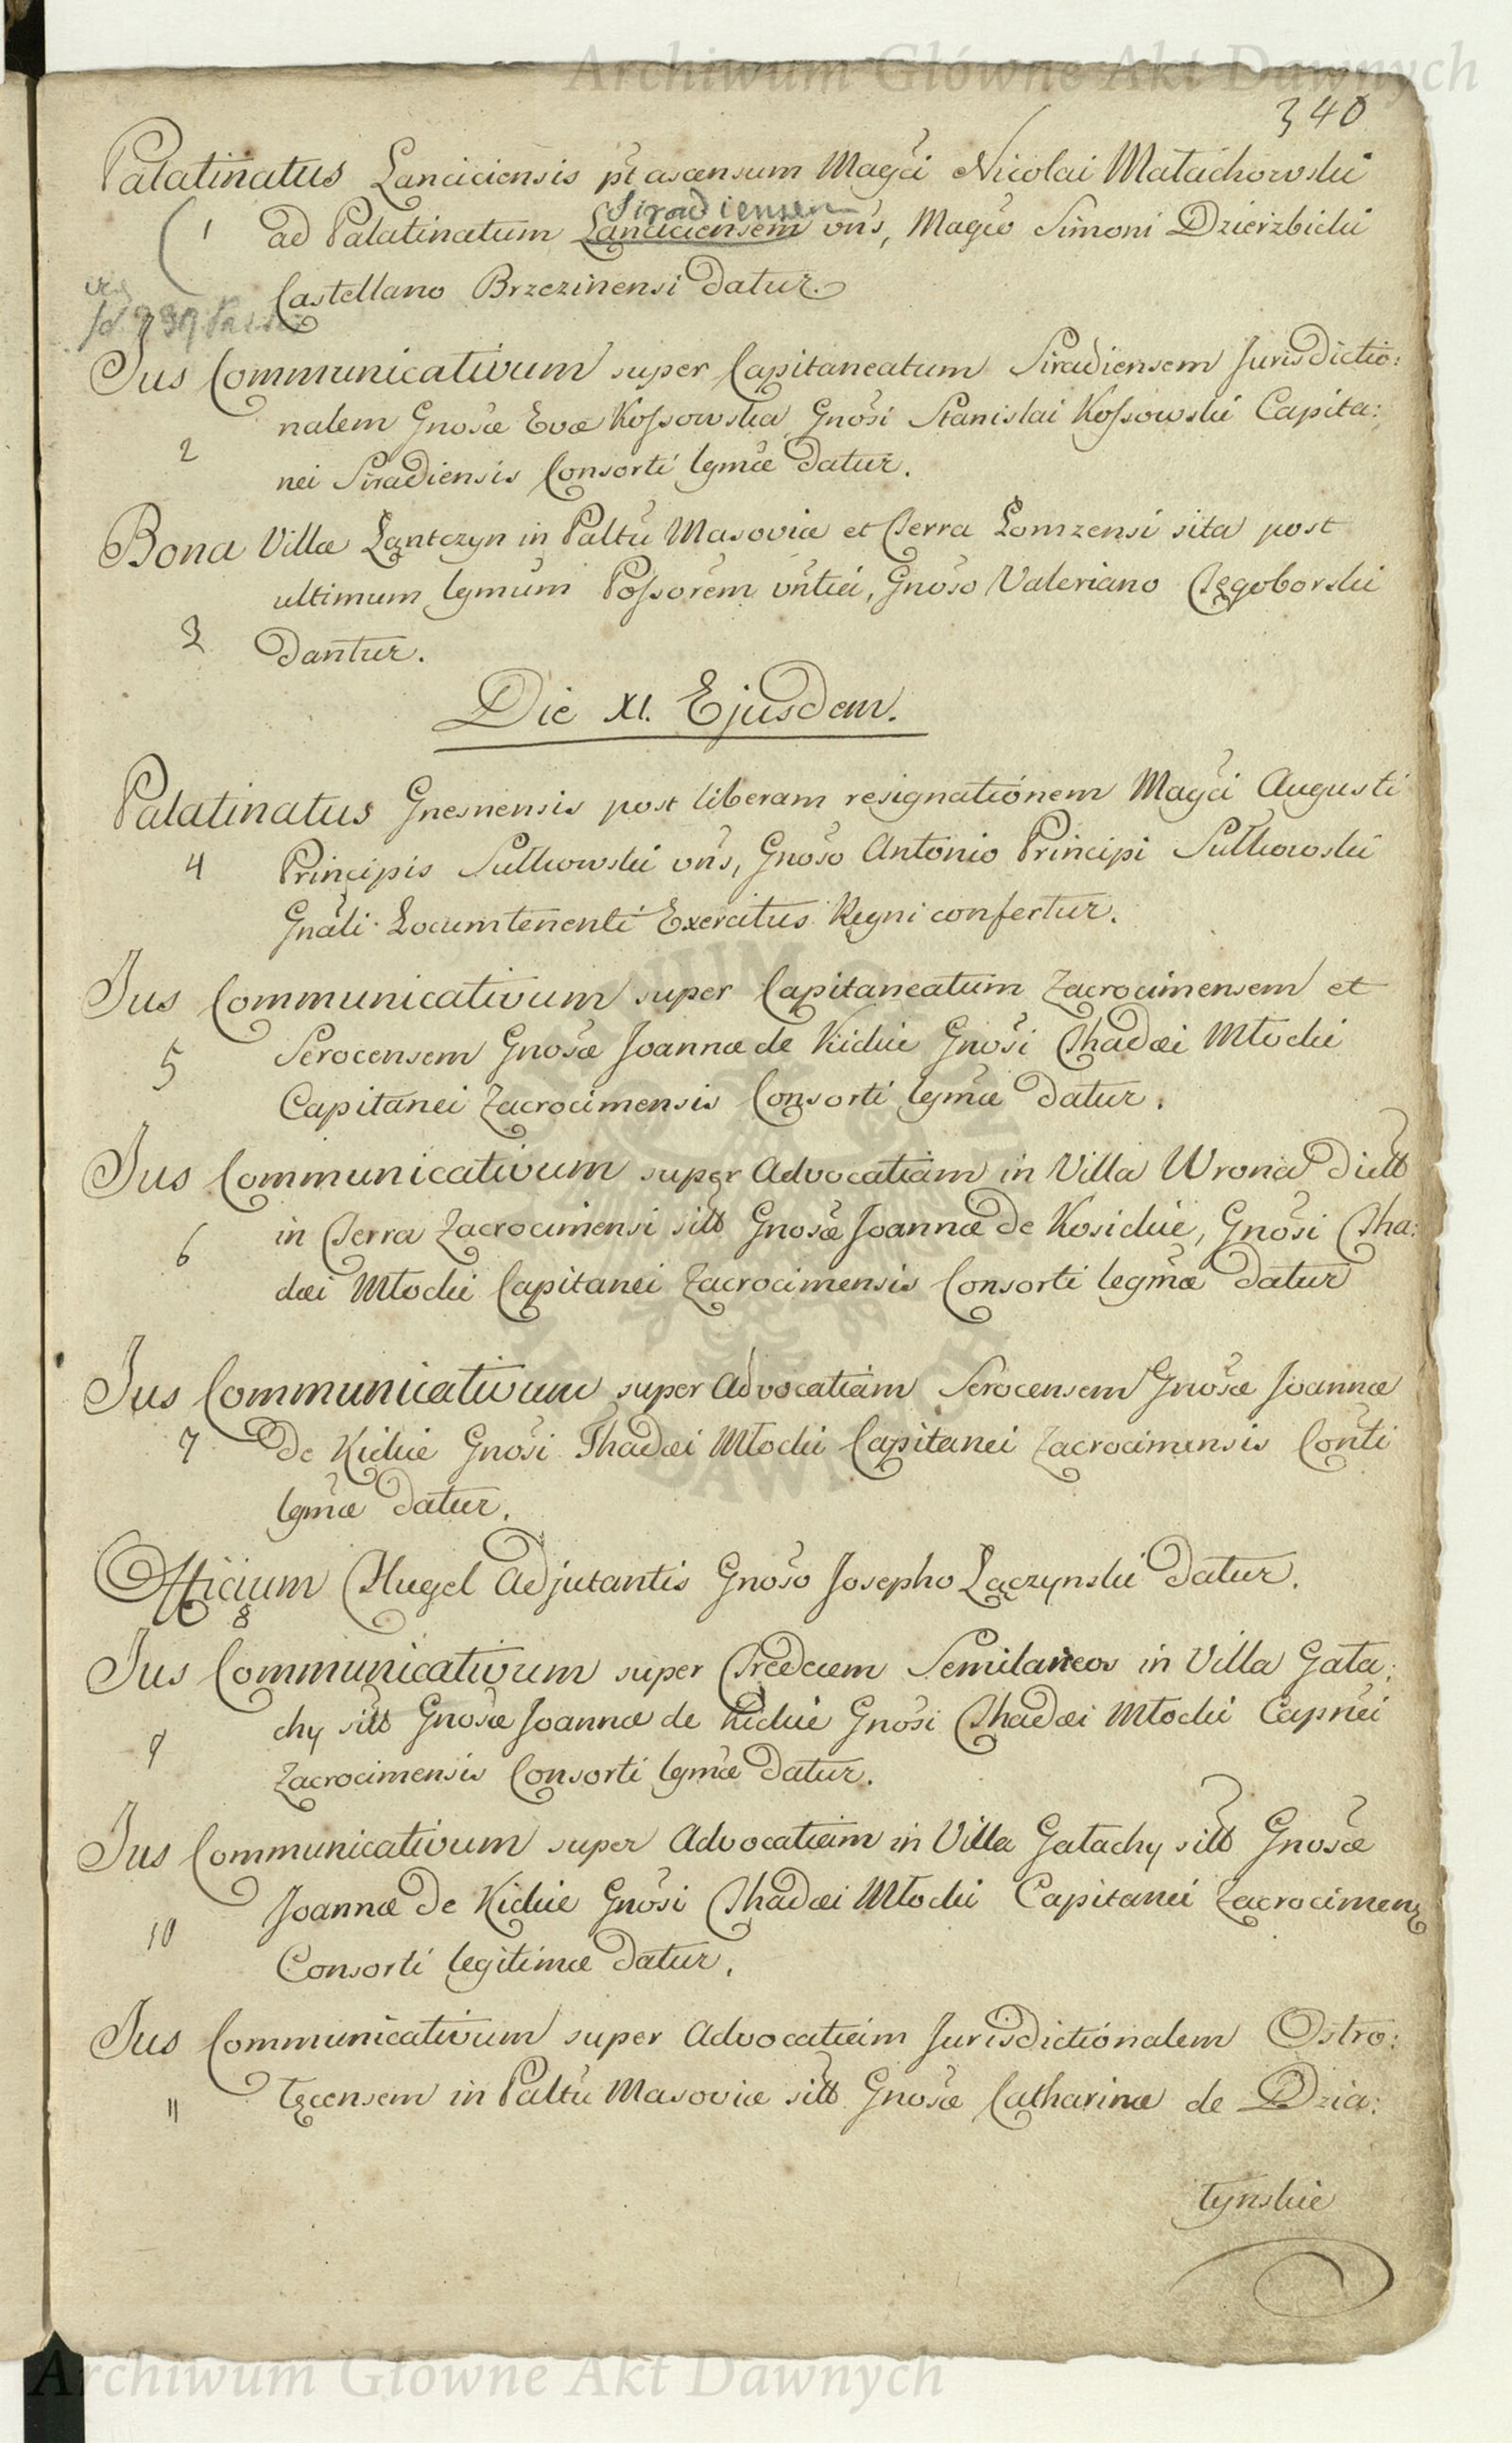 Archiwum Główne Akt Dawnych
340
Palatinatus Lanciciensis pt ascensum Magci Nicolai Małachowski
Siradiensem
1 ad Palatinatum Lanciciensem vns, Magco Simoni Dzierzbicki
Castellano Brzezinensi datur.
Jus Communicativum super Capitaneatum Siradiensem Jurisdictio:
nalem Gnosæ Evæ Kossowska, Gnosi Stanislai Kossowski Capita:
2
nei Siradiensis Consorti lgmæ datur.
Bona Villæ Lantczyn in Paltu Masoviæ et Terra Lomzensi sita post
ultimum lgmum Possorem vntia, Gnoso Valeriano Tęgoborski
3 dantur.
Die XI. Ejusdem.
Palatinatus Gnesnensis post liberam resignationem Magci Augusti
4 Principis Sułkowski vns, Gnoso Antonio Principi Sułkowski
Gnali Locumtenenti Exercitus Regni confertur.
Jus Communicativum super Capitaneatum Zacrocimensem et
5 Serocensem Gnosæ Joannæ de Kickie Gnosi Thadæi Młocki
Capitanei Zacrocimensis Consorti lgmæ datur.
Jus Communicativum super Advocatiam in Villa Wrona dictt
6 in Terra Zacrocimensi sitt Gnosæ Joannæ de Kosickie, Gnosi Tha:
dæi Młocki Capitanei Zacrocimensis Consorti legmæ datur
Jus Communicativum super Advocatiam Serocensem Gnosæ Joannæ
7 de Kickie Gnosi Thadæi Młocki Capitanei Zacrocimensis Conti
lgmæ datur.
Officium Flugel Adjutantis Gnoso Josepho Łączynski datur.
8
Jus Communicativum super Tredecem Semilaneos in Villa Gata:
9 chy sitt Gnosæ Joannæ de Kickie Gnosi Thadæi Młocki Capnei
Zacrocimensis Consorti lgmæ datur.
Jus Communicativum super Advocatiam in Villa Gatachy sitt Gnosæ
Joannæ de Kickie Gnosi Thadæi Młocki Capitanei Zacrocimen
10
Consorti legitimæ datur.
Jus Communicativum super Advocatiam Jurisdictionalem Ostro:
11 łęcensem in Paltu Masoviæ sitt Gnosæ Catharinæ de Dzia:
łynskie
Archiwum Główne Akt Dawnych